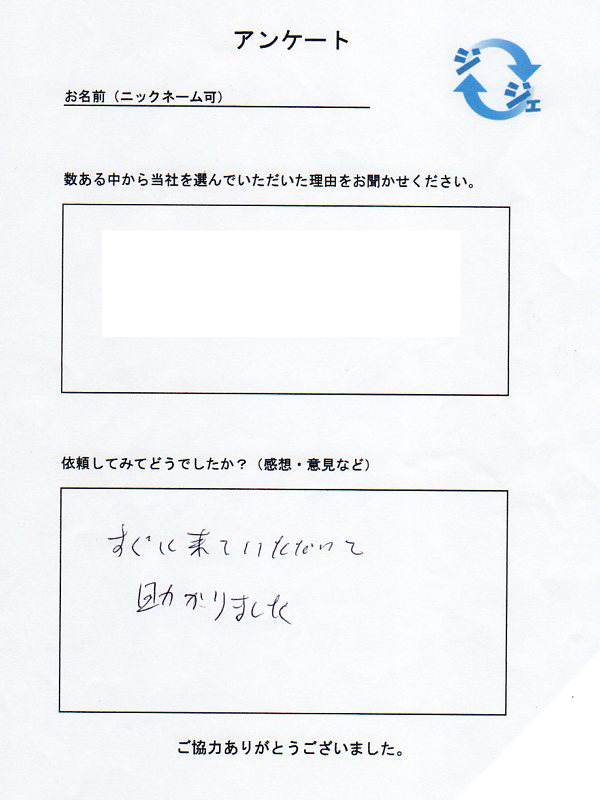 アンケート
ジ
ジェ
お名前（ニックネーム可）
数ある中から当社を選んでいただいた理由をお聞かせください。
依頼してみてどうでしたか？（感想・意見など）
すぐに来ていただいて
助かりました
ご協力ありがとうございました。